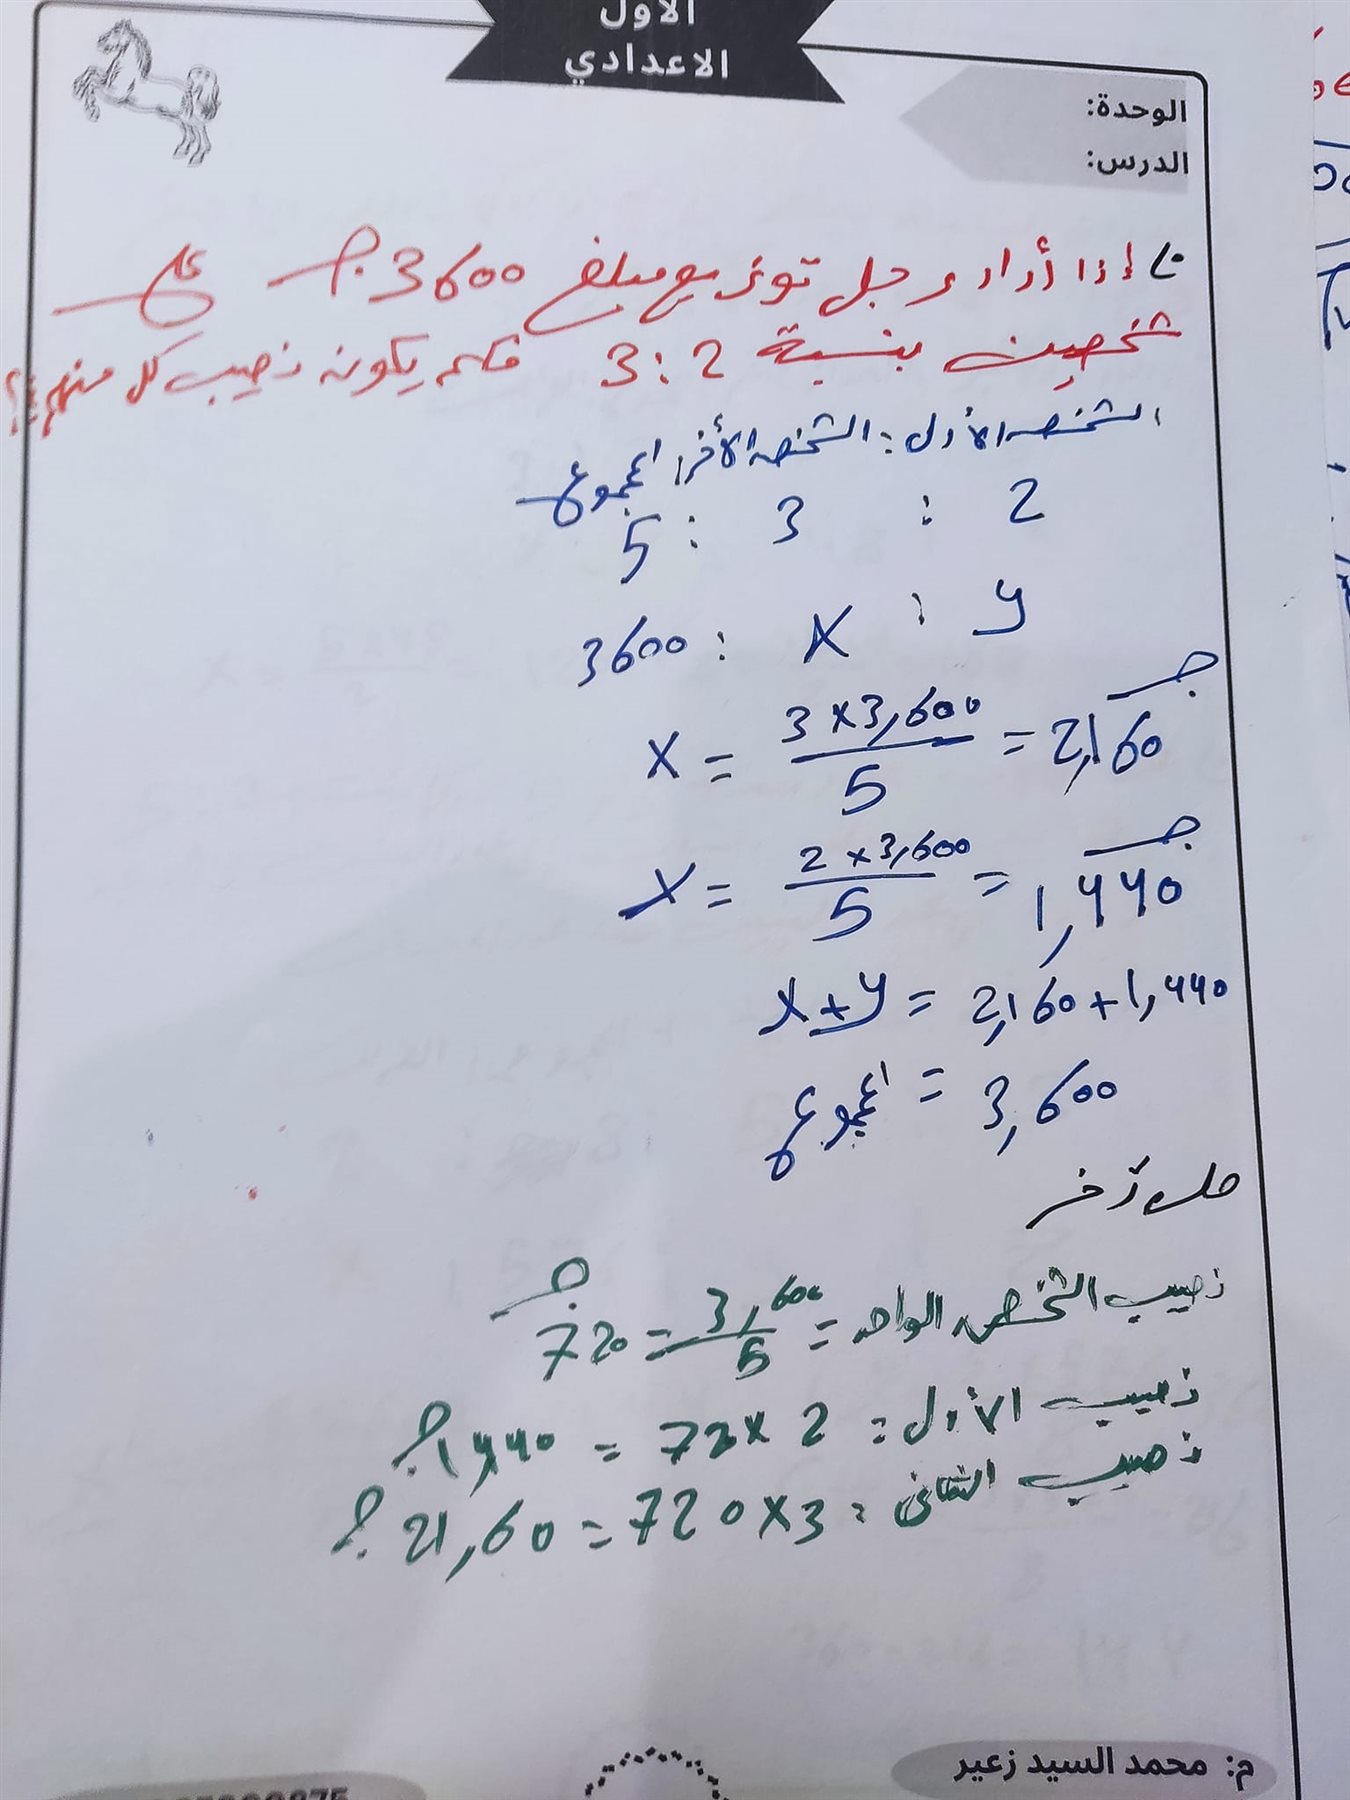 الأول
الاعدادي
الوحدة:
الدرس:
إذا أراد رجل توزيع مبلغ 3600 جـ على
شخصين بنسبة 2 : 3 فكم يكون نصيب كل منهم؟
الشخص الأول : الشخص الأخر : المجموع
2 : 3 : 5
y : x : 3600
x = 3 × 3,600 / 5 = 2,160 جـ
x = 2 × 3,600 / 5 = 1,440 جـ
x + y = 2,160 + 1,440
المجموع = 3,600
حل آخر
نصيب الشخص الواحد = 3,600 / 5 = 720 جـ
نصيب الأول = 2 × 720 = 1,440 جـ
نصيب الثانى = 3 × 720 = 21,60 جـ
م: محمد السيد زعير